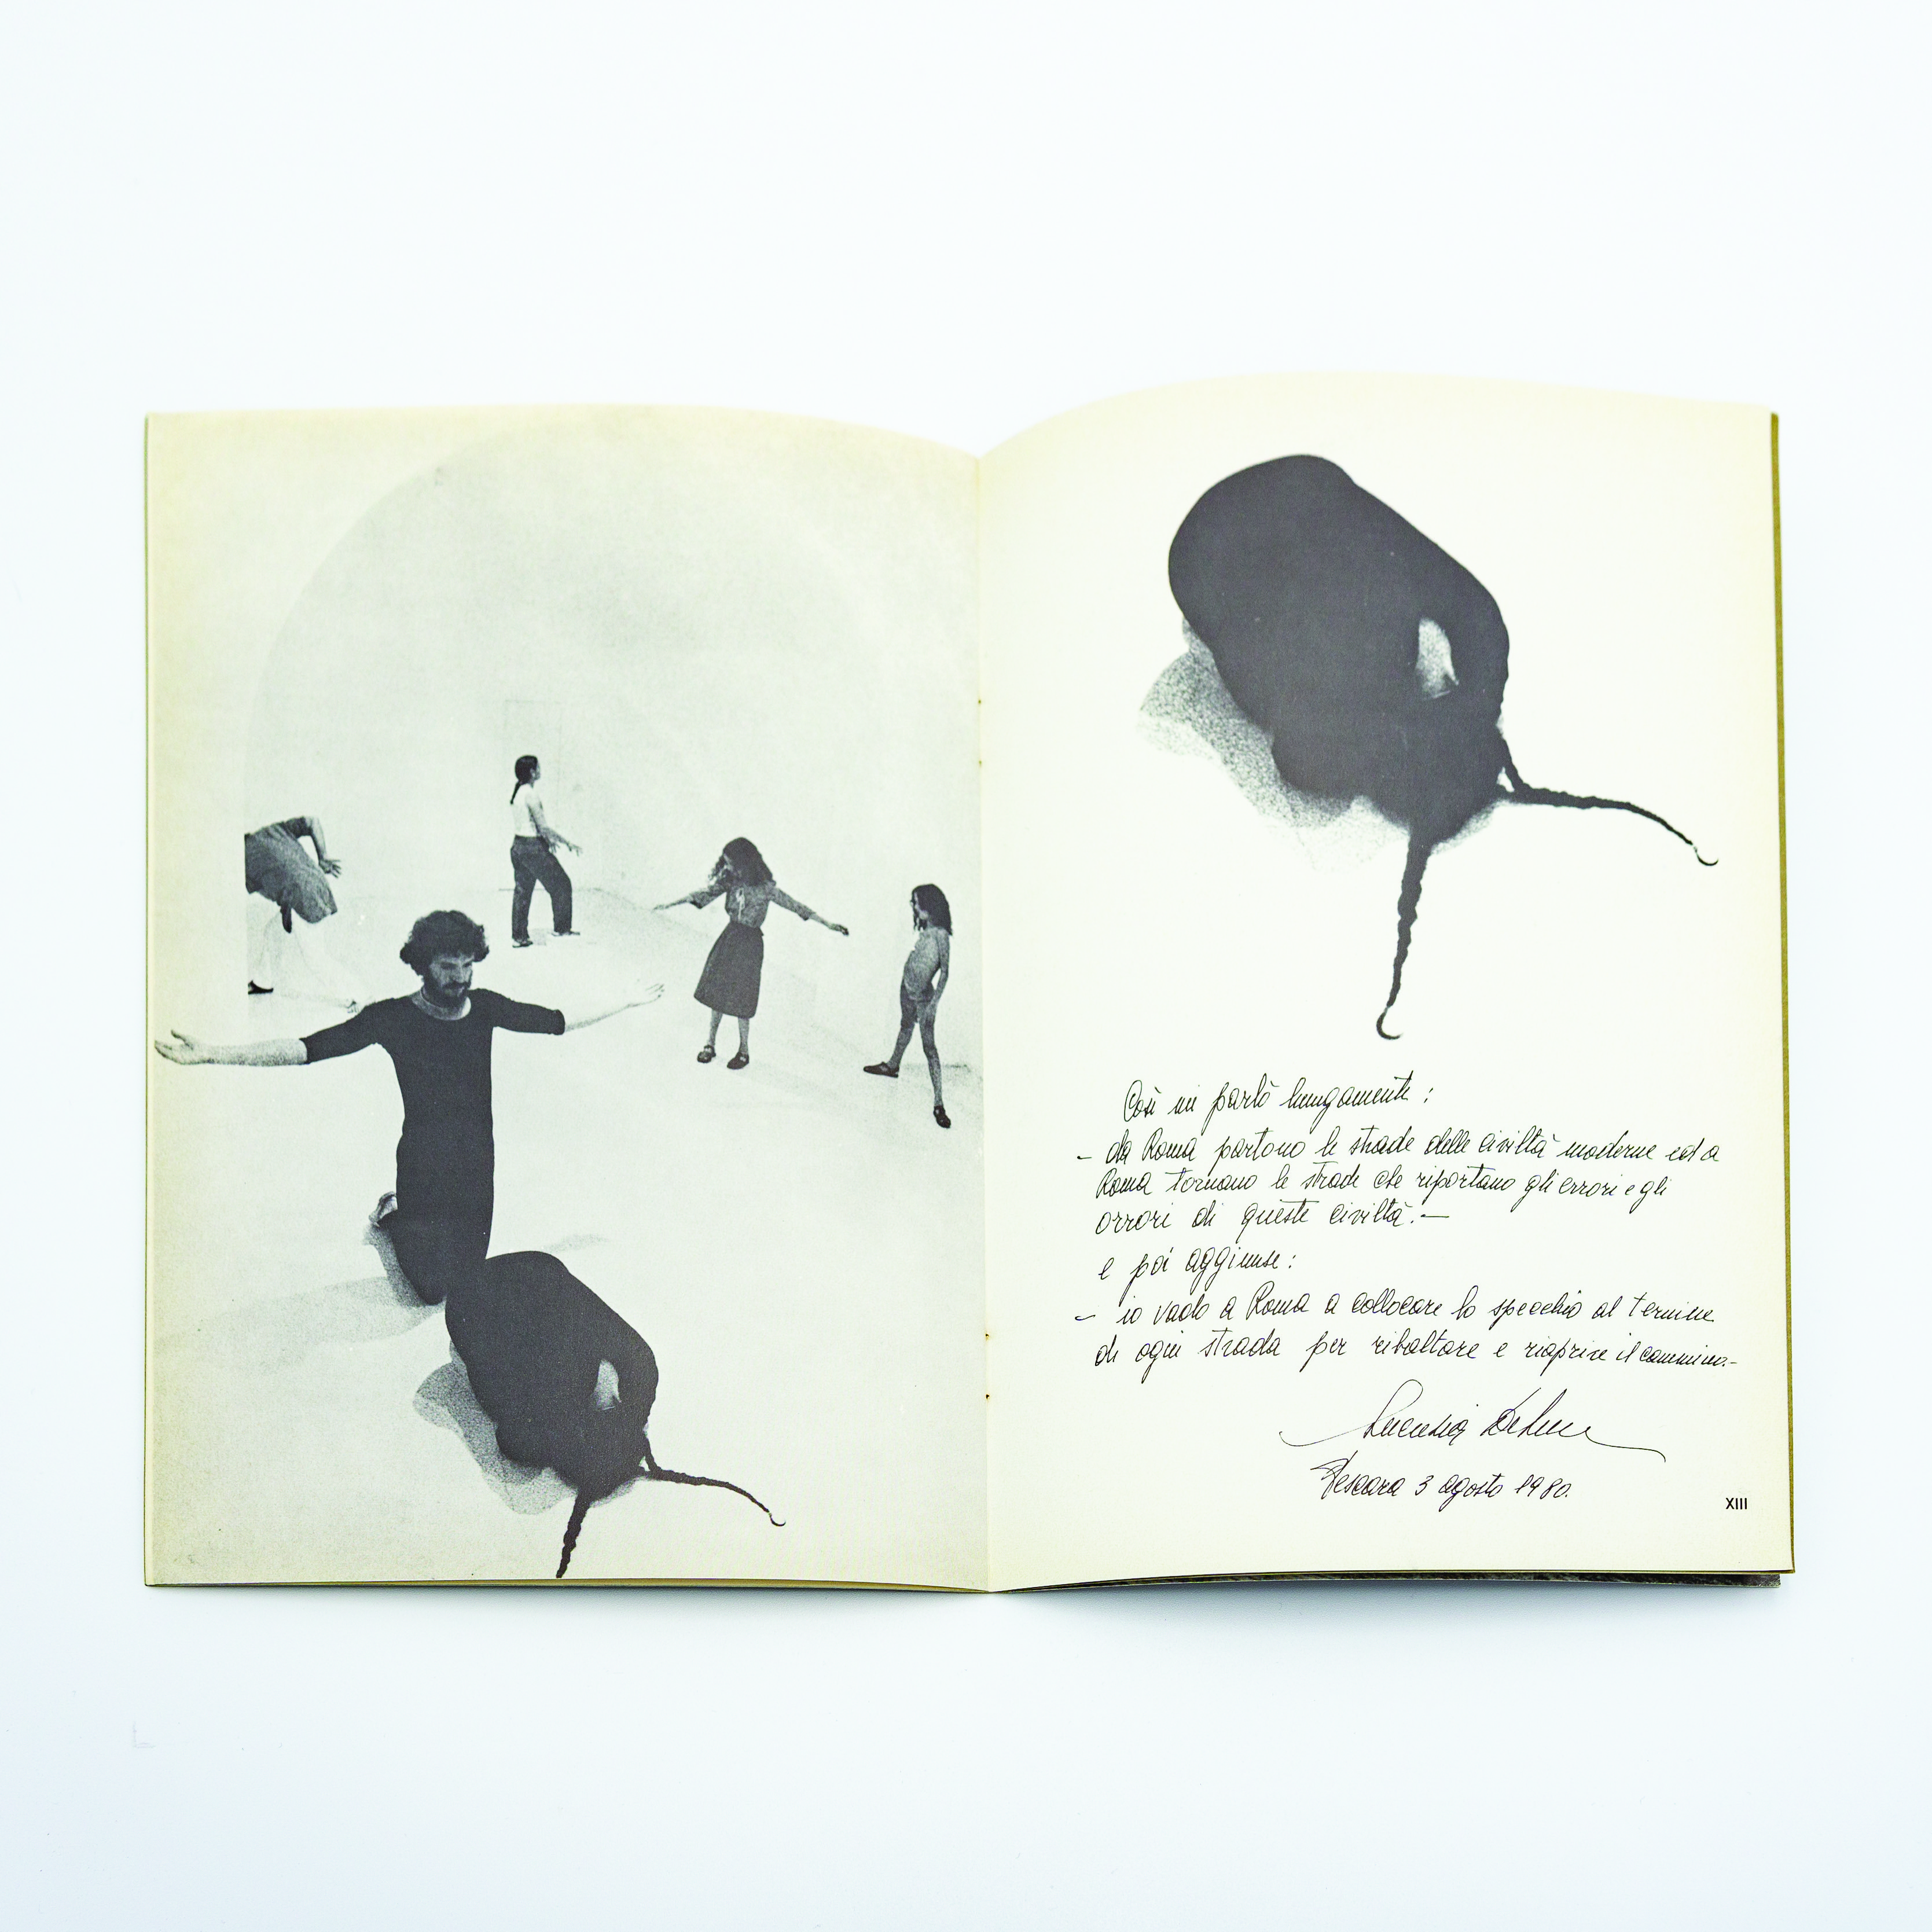 Così mi parlò lungamente:
- da Roma partono le strade delle civiltà moderne ed a
Roma tornano le strade che riportano gli errori e gli
orrori di queste civiltà.-
e poi aggiunse:
- io vado a Roma a collocare lo specchio al termine
di ogni strada per ribaltare e riaprire il cammino.-
Lucrezia De
Pescara 3 agosto 1980.
XIII